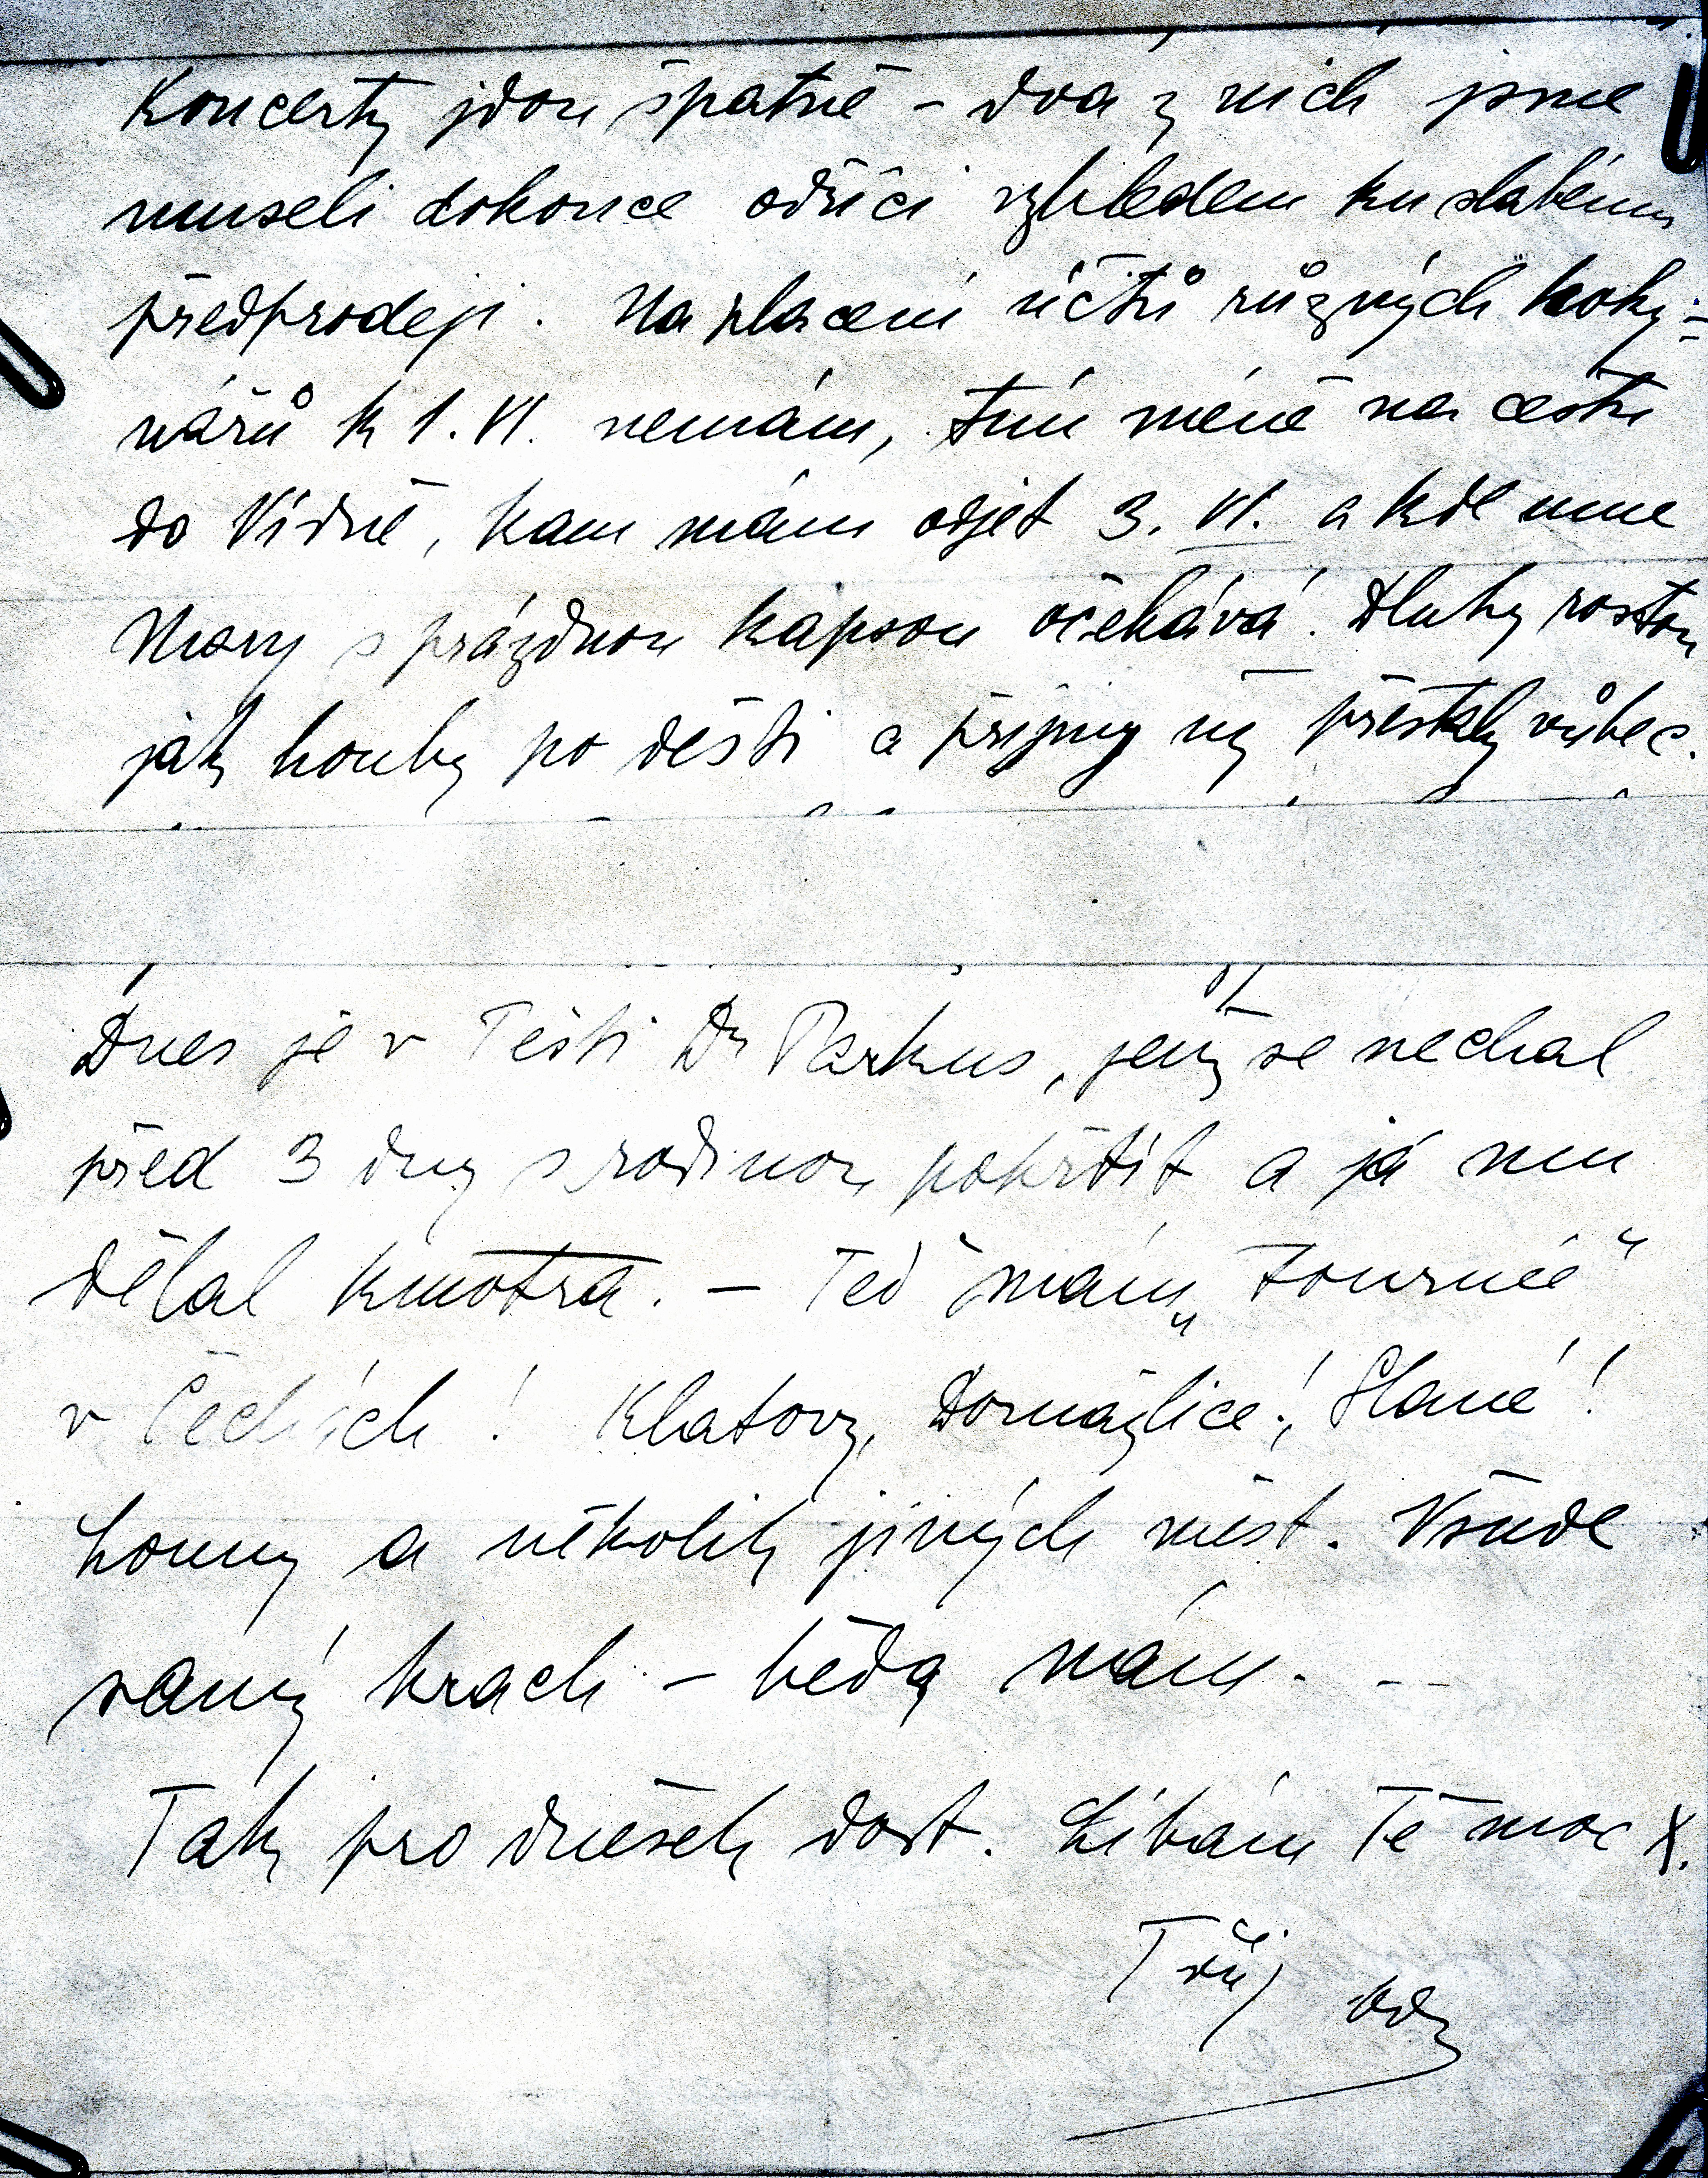 Koncerty jdou špatně – dva z nich jsme
museli dokonce odříci vzhledem ku slabému
předprodeji. Na placení účtů různých hoky=
nářů k 1. VI. nemám, tím méně na cestu
do Vídně, kam mám odjet 3. VI. a kde mne
Mary s prázdnou kapsou očekává. Dluhy rostou
jak houby po dešti a příjmy mi přestaly vůbec.
Dnes je v Pešti Dr Parkus, jenž se nechal
před 3 dny s rodinou pokřtít a já mu
dělal kmotra. – Teď mám „tournée“
v Čechách! Klatovy, Domažlice!, Slané!
Louny a několik jiných měst. Všude
samý krach – běda nám. - -
Tak pro dnešek dost. Líbám Tě moc X.
Tvůj